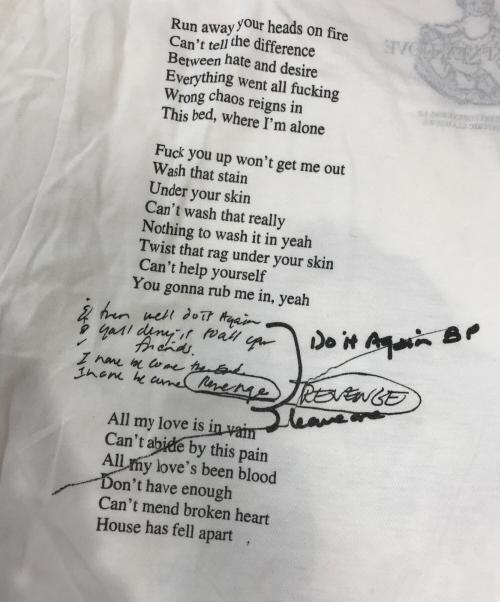 Run away your heads on fire
Can't tell the difference
Between hate and desire
Everything went all fucking
Wrong chaos reigns in
This bed, where I'm alone
Fuck you up won't get me out
Wash that stain
Under your skin
Can't wash that really
Nothing to wash it in yeah
Twist that rag under your skin
Can't help yourself
You gonna rub me in, yeah
then well do it Again
Do it Again BP
yall deny it to all your
friends.
I have become the End
I have become Revenge
REVENGE
leave one
All my love is in vain
Can't abide by this pain
All my love's been blood
Don't have enough
Can't mend broken heart
House has fell apart